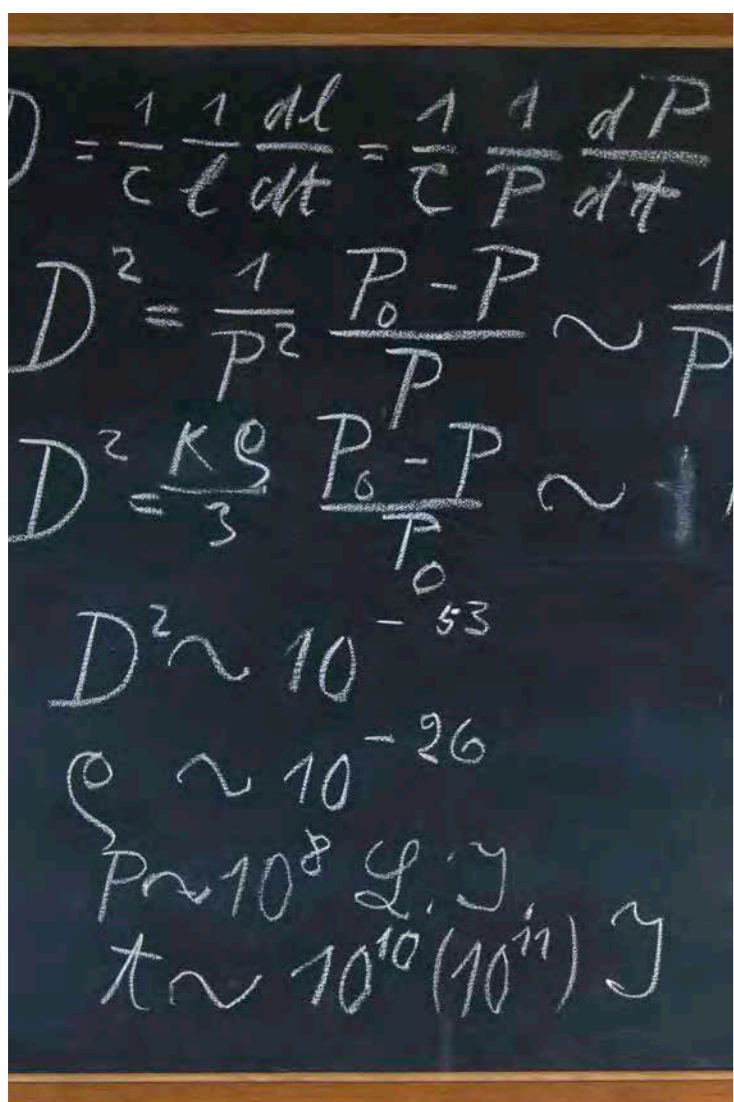 D = 1/c 1/l dl/dt = 1/c 1/P dP/dt
D² = 1/P² (P₀ - P)/P ~ 1/P
D² = Kρ/3 (P₀ - P)/P₀ ~
D² ~ 10⁻⁵³
ρ ~ 10⁻²⁶
P ~ 10⁸ L.J.
t ~ 10¹⁰ (10¹¹) J